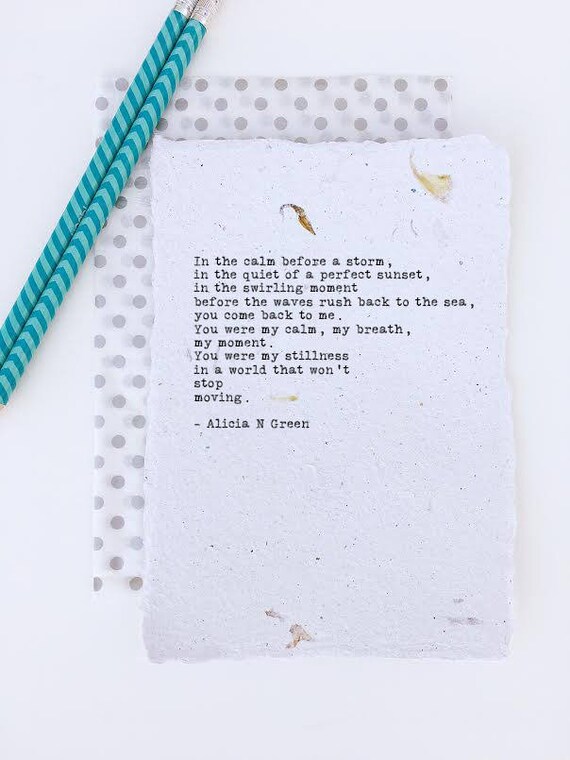 In the calm before a storm,
in the quiet of a perfect sunset,
in the swirling moment
before the waves rush back to the sea,
you come back to me.
You were my calm, my breath,
my moment.
You were my stillness
in a world that won't
stop
moving.
- Alicia N Green